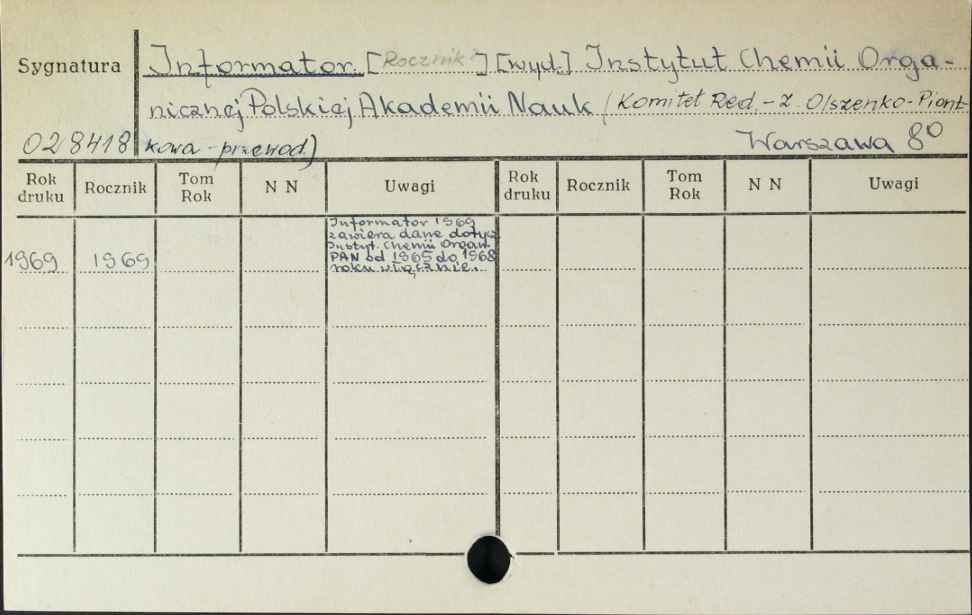 Sygnatura
Informator. [Rocznik] [wyd.] Instytut Chemii Orga-
nicznej Polskiej Akademii Nauk (Komitet Red. - Z. Olszenko-Piont-
028418 kowa - przewod.) Warszawa 8°
Rok druku Rocznik Tom Rok N N Uwagi Rok druku Rocznik Tom Rok N N Uwagi
1969 1969
Informator 1969
zawiera dane dotycz.
Instyt. Chemii Organ.
PAN od 1965 do 1968
roku włącznie.